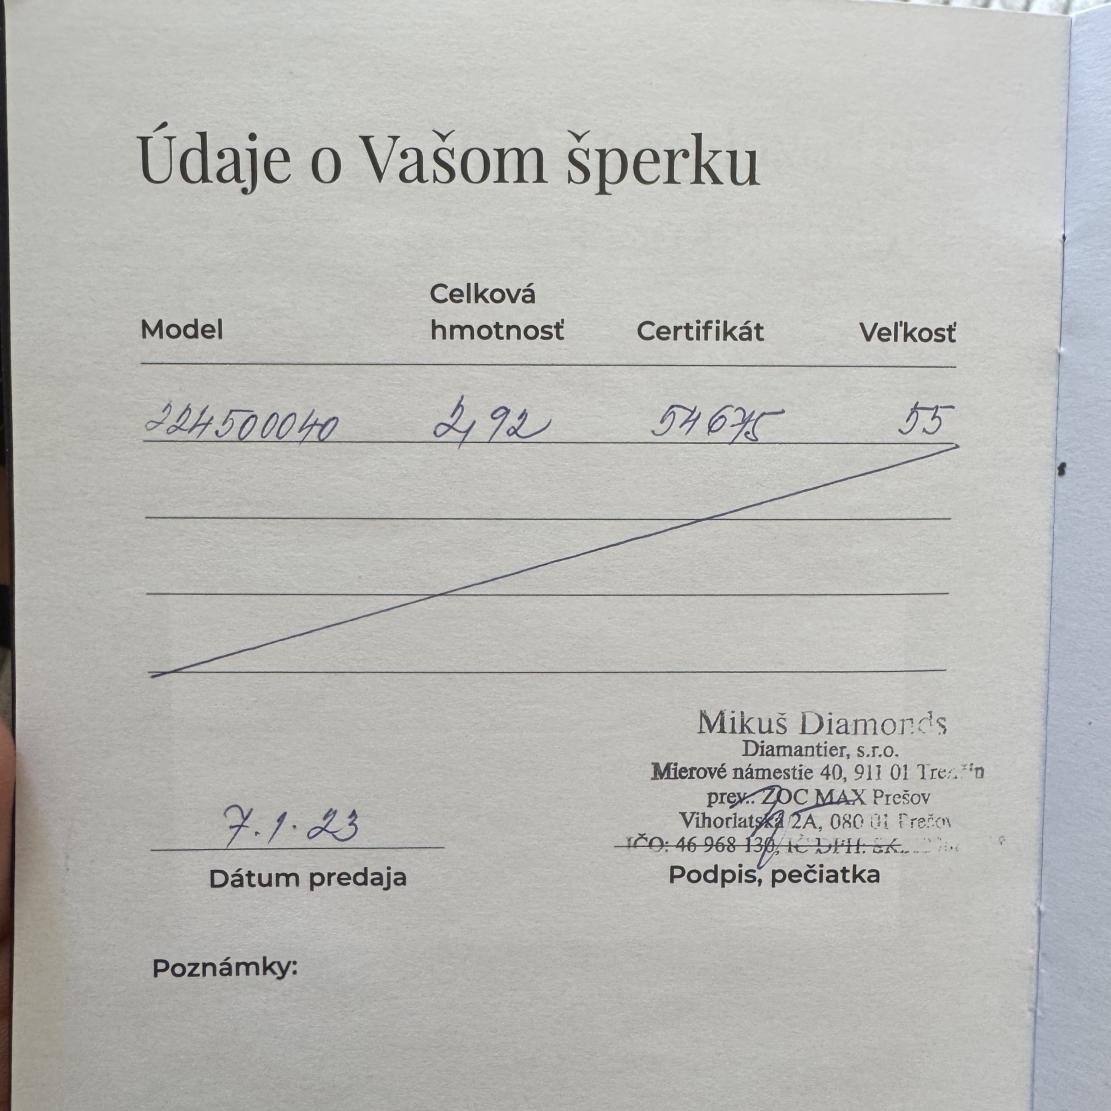 Údaje o Vašom šperku
Model Celková hmotnosť Certifikát Veľkosť
224500040 2,92 54675 55
Mikuš Diamonds
Diamantier, s.r.o.
Mierové námestie 40, 911 01
prev.: ZOC MAX Prešov
Vihorlatská 2A, 080 01 Prešov
IČO: 46 968 130, IČ DPH: SK
7.1.23
Dátum predaja Podpis, pečiatka
Poznámky: